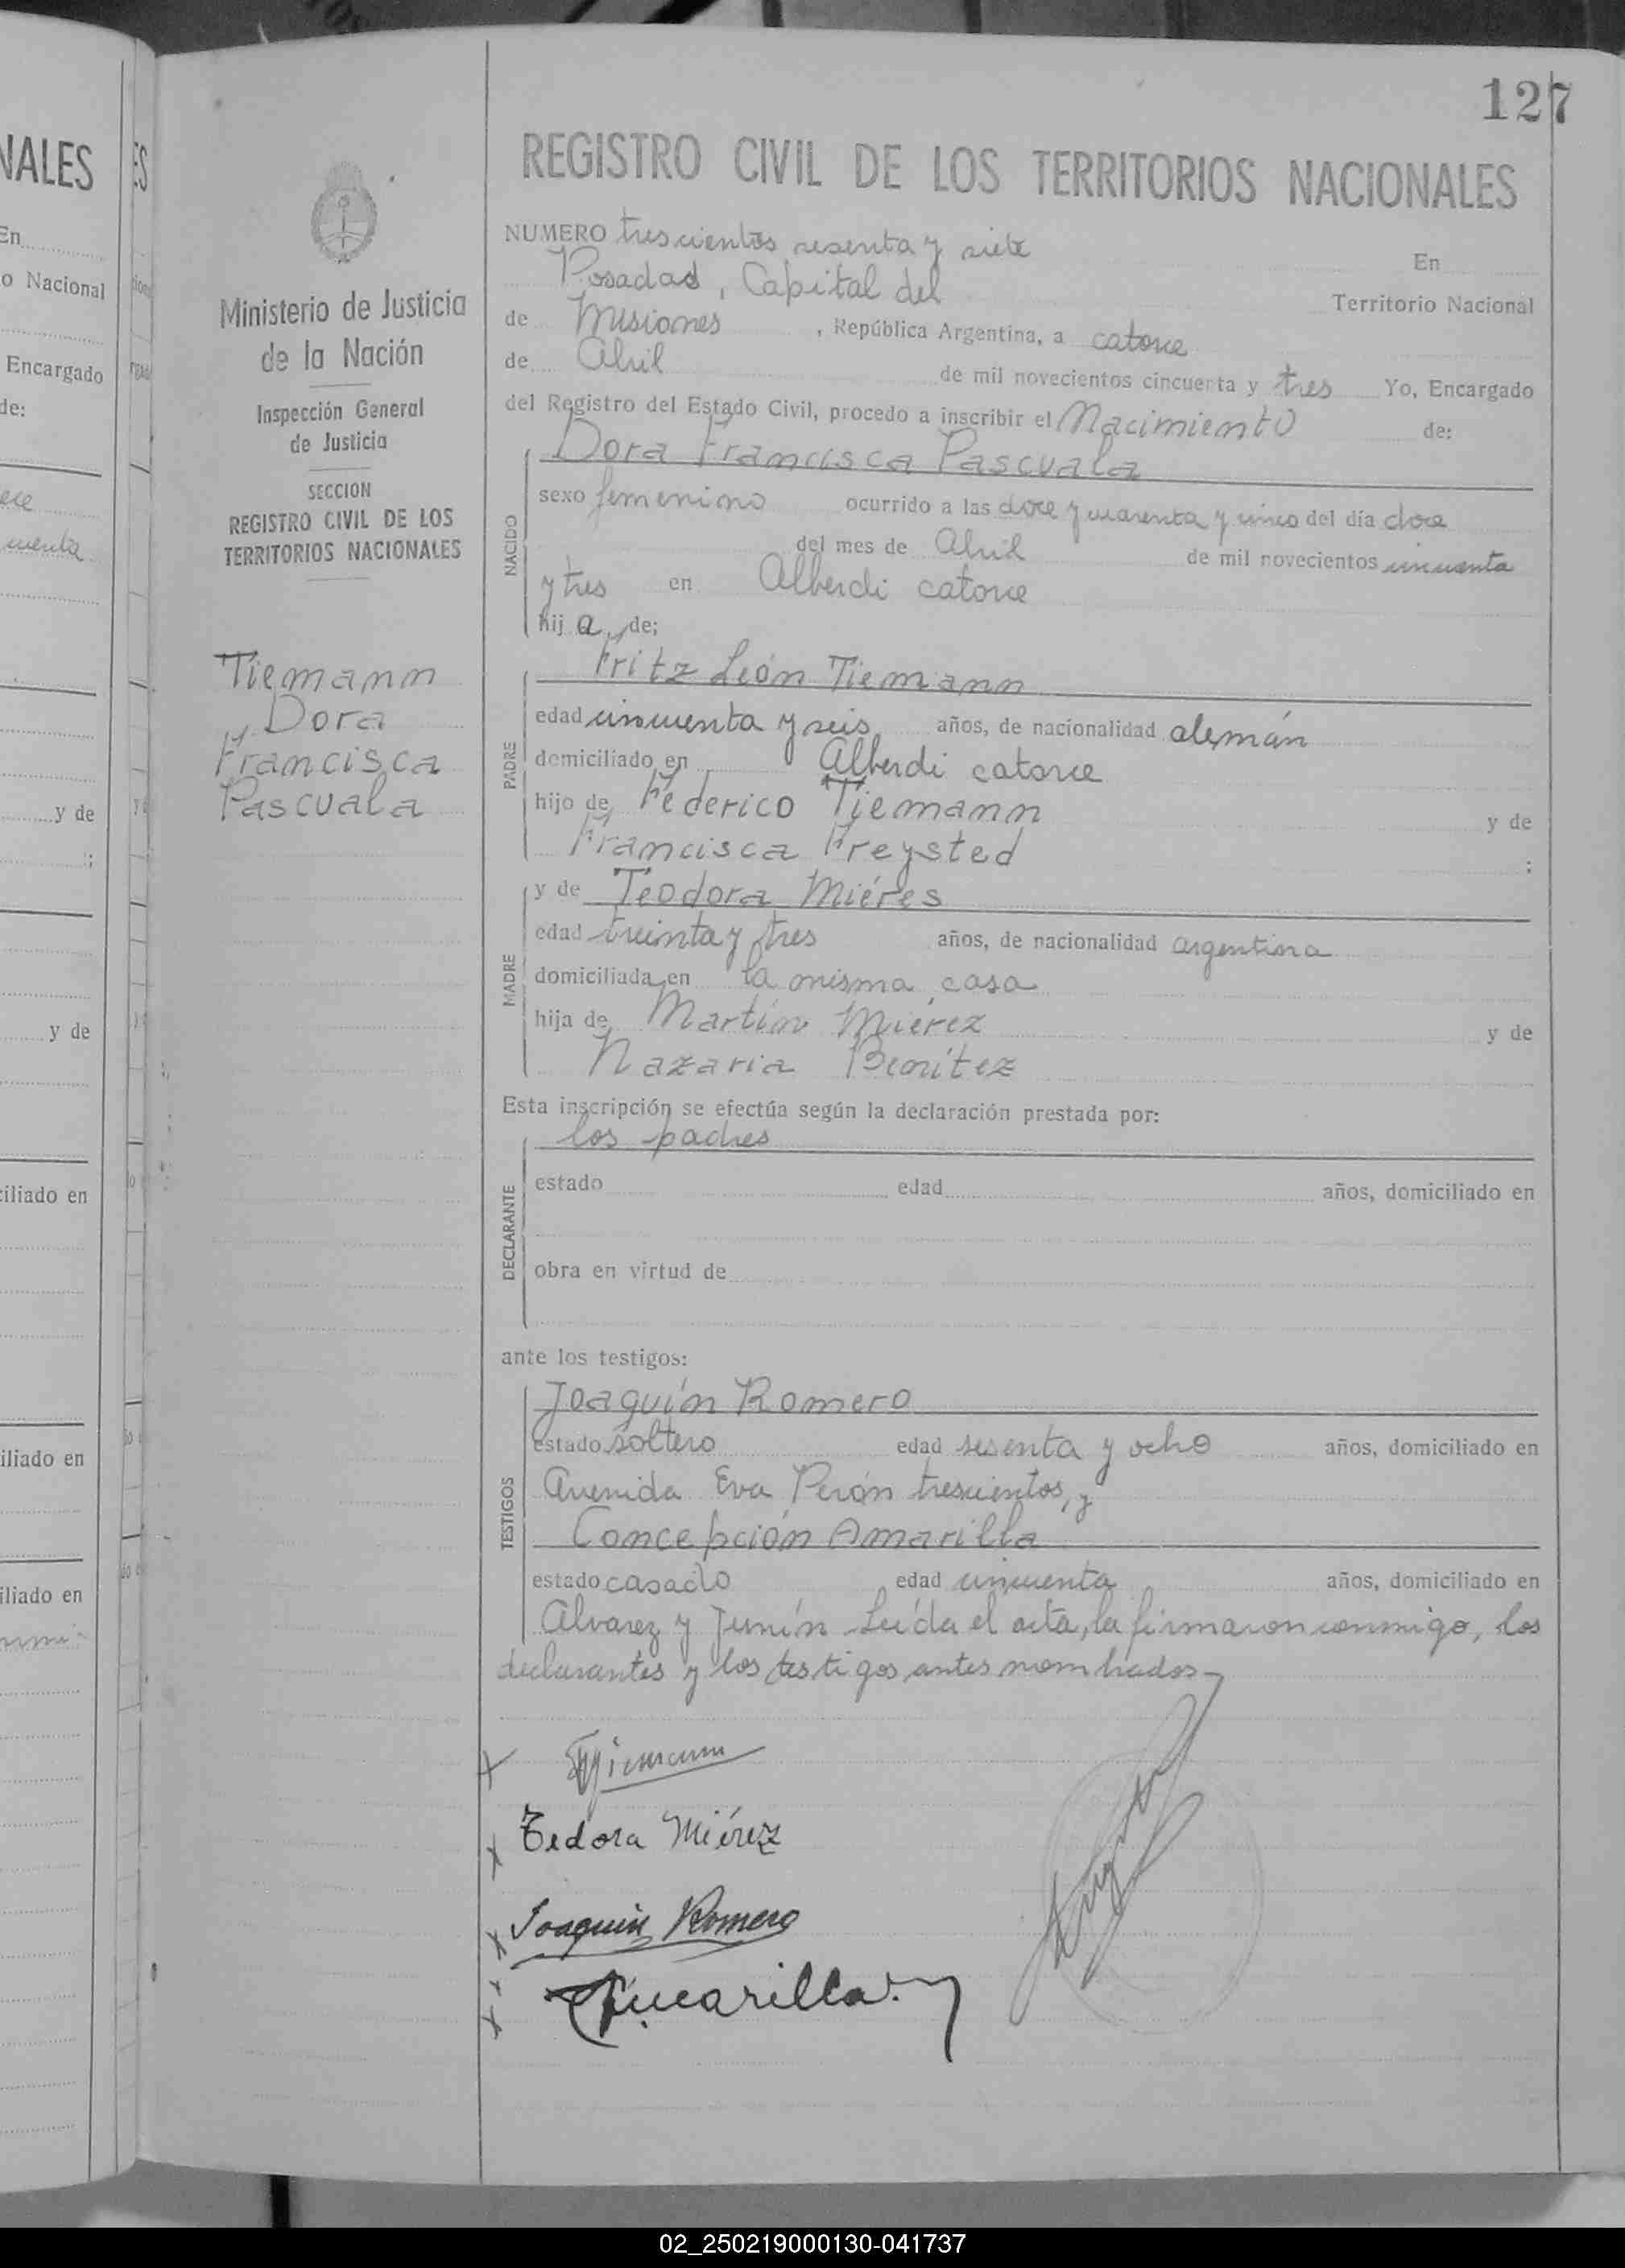 127
REGISTRO CIVIL DE LOS TERRITORIOS NACIONALES
NUMERO trescientos sesenta y siete En
Posadas, Capital del Territorio Nacional
de Misiones, República Argentina, a catorce
de Abril de mil novecientos cincuenta y tres Yo, Encargado
del Registro del Estado Civil, procedo a inscribir el Nacimiento de:
NACIDO
Dora Francisca Pascuala
sexo femenino ocurrido a las doce y cuarenta y cinco del día doce
del mes de Abril de mil novecientos cincuenta
y tres en Alberdi catorce
hij a de;
PADRE
Fritz León Tiemann
edad cincuenta y seis años, de nacionalidad alemán
domiciliado en Alberdi catorce
hijo de Federico Tiemann y de
Francisca Freysted ;
MADRE
y de Teodora Miéres
edad treinta y tres años, de nacionalidad argentina
domiciliada en la misma casa
hija de Martín Miérez y de
Nazaria Benítez
Esta inscripción se efectúa según la declaración prestada por:
DECLARANTE
los padres
estado edad años, domiciliado en
obra en virtud de
ante los testigos:
TESTIGOS
Joaquín Romero
estado soltero edad sesenta y ocho años, domiciliado en
Avenida Eva Perón trescientos, y
Concepción Amarilla
estado casado edad cincuenta años, domiciliado en
Alvarez y Junín Leída el acta, la firmaron conmigo, los
declarantes y los testigos antes nombrados
Tiemann
Tedora Miérez
Joaquin Romero
Ministerio de Justicia
de la Nación
Inspección General
de Justicia
SECCION
REGISTRO CIVIL DE LOS
TERRITORIOS NACIONALES
Tiemann
Dora
Francisca
Pascuala
NALES
En
o Nacional
Encargado
de:
y de
;
y de
ciliado en
iliado en
iliado en
02_250219000130-041737